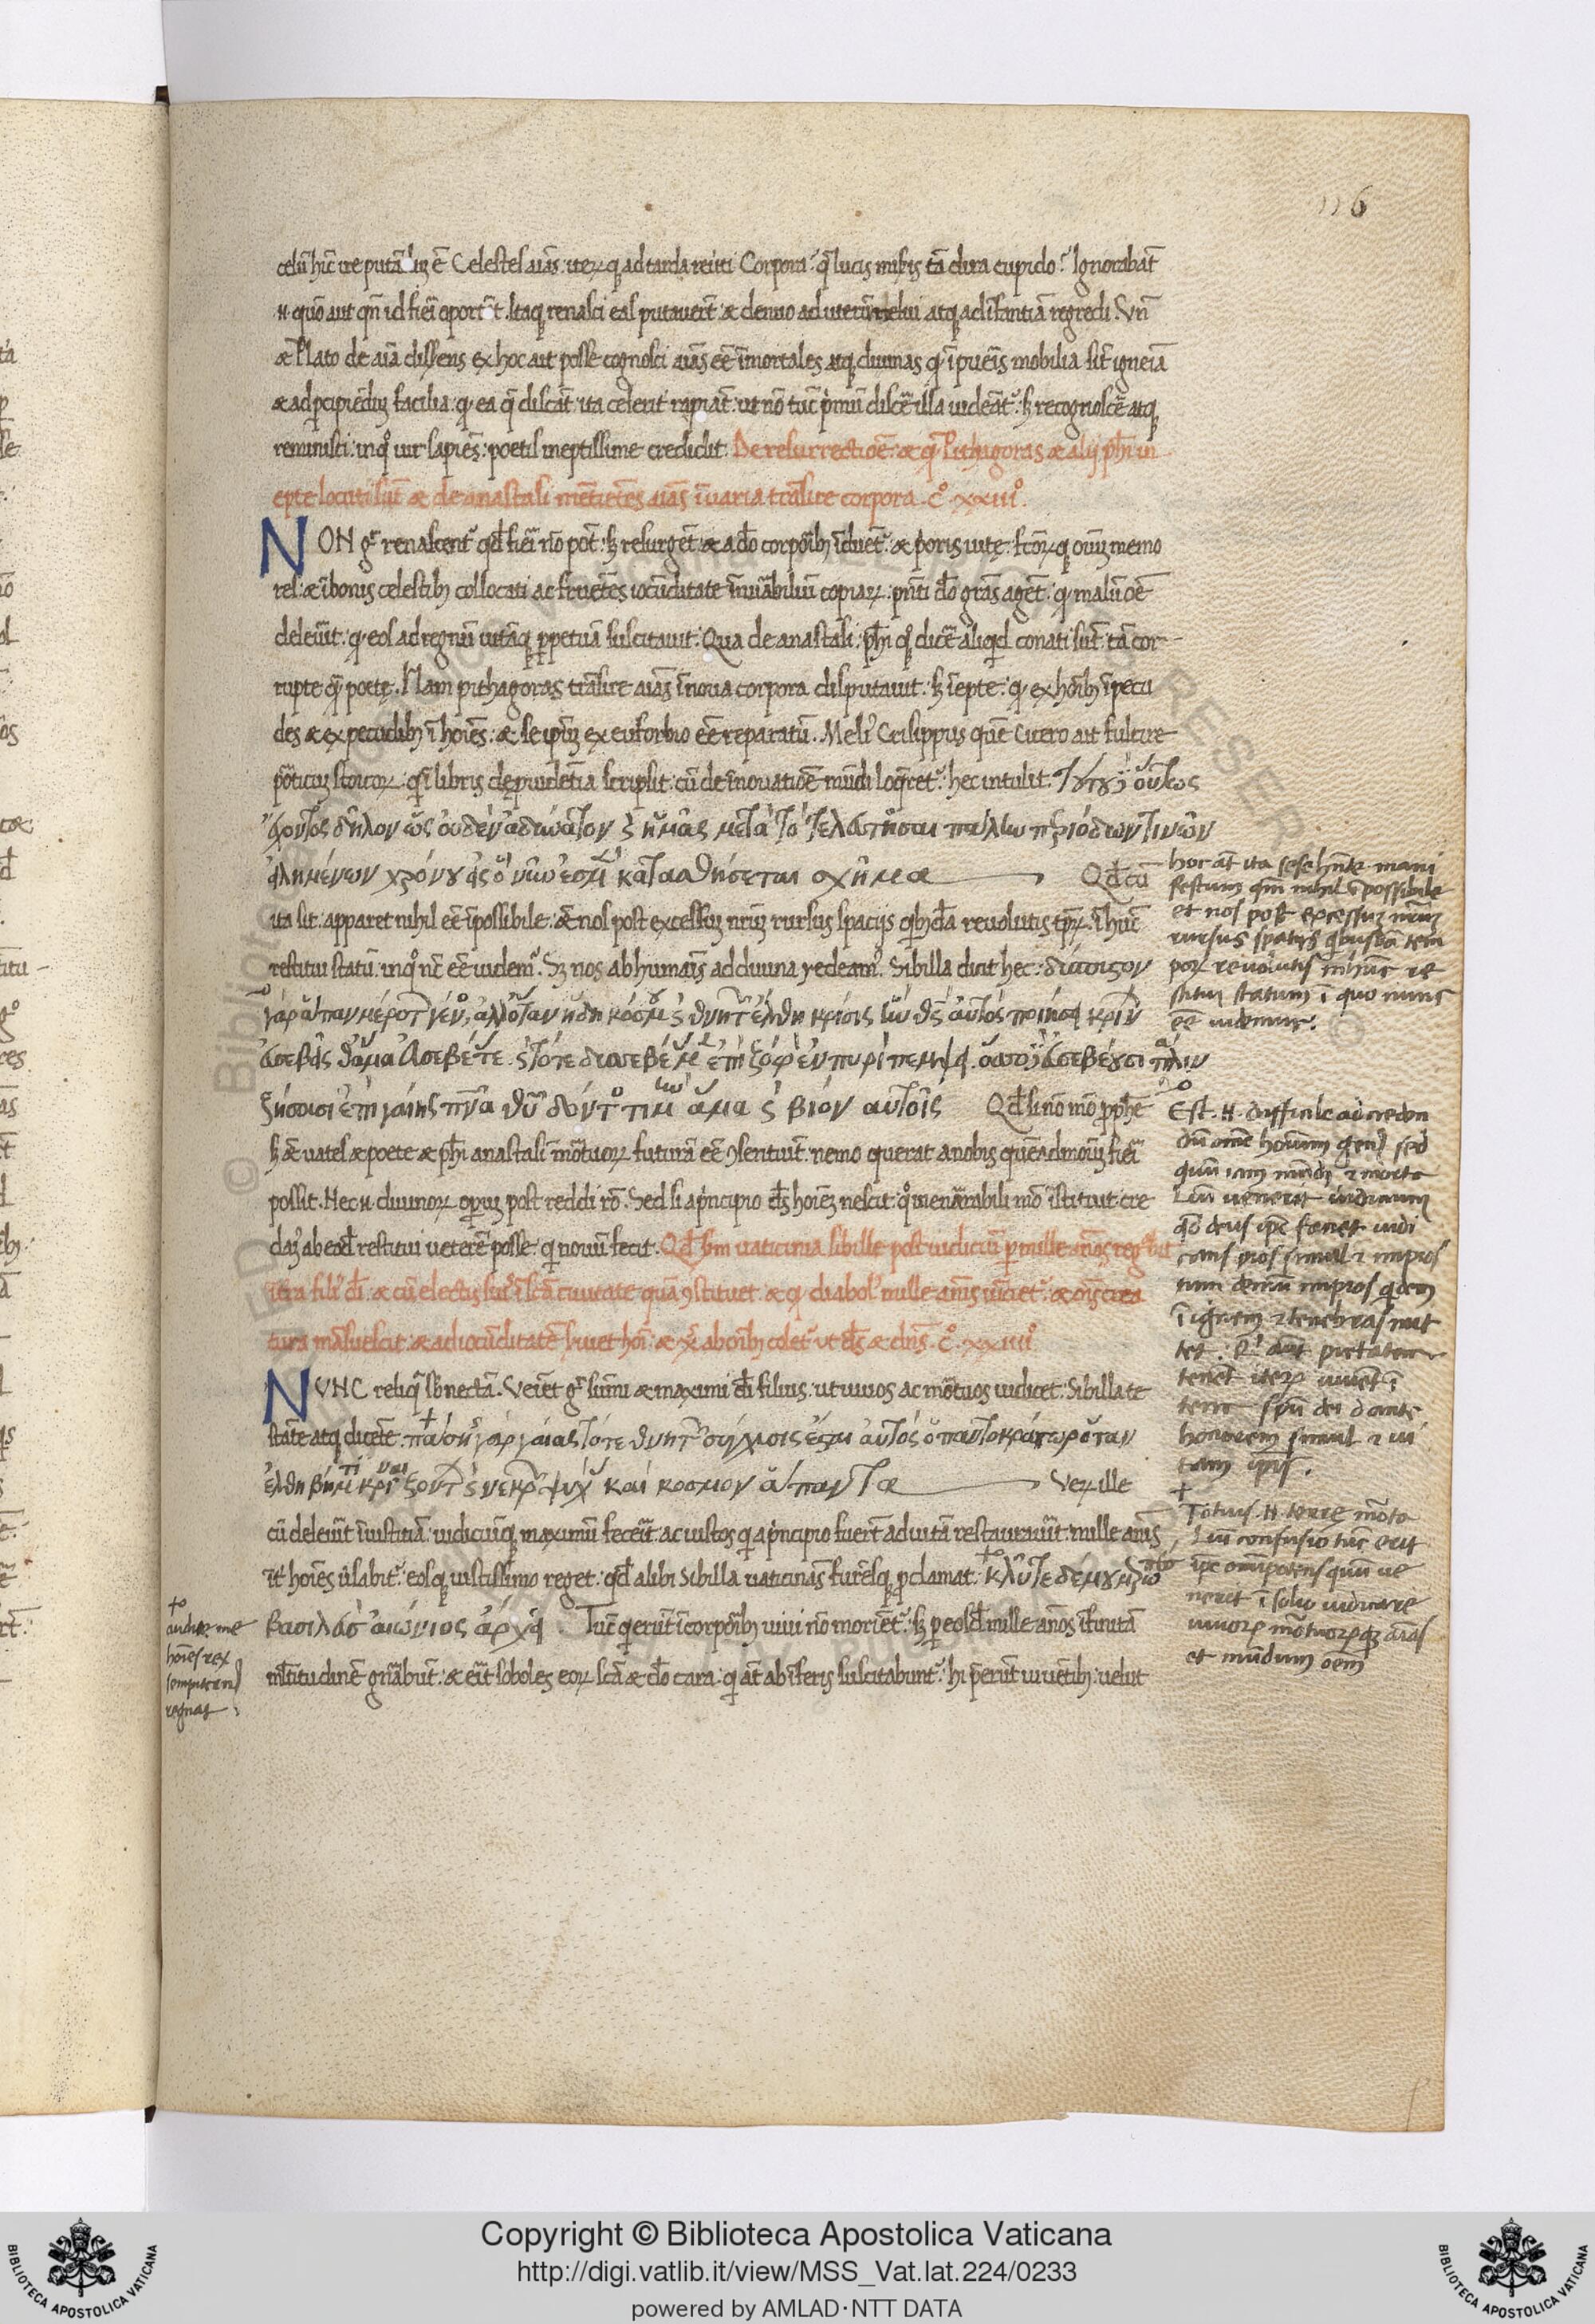 116
celū hīc ire putādum ē Celestes aīas: iterumq; ad tarda reuti Corpora? q̄ lucis miseris tā dira cupido? Ignorabāt
n. quō aut qn̄ id fieri oporteret. Itaq; renasci eas putauerūt & denuo ad uterū reuolui atq; ad īfantiā regredi. Vn̄
& Plato de aīa disserens ex hoc ait posse cognosci aīas eē īmortales atq; diuinas q; ī pueris mobilia sūt īgenia
& ad pcipiēdum facilia: q; ea q̄ discāt: ita celeriter rapiāt: ut nō tūc pͥmū discere illa uideāt᷑: sꝫ recognoscere atq;
reminisci: in quo uir sapiēs: poetis ineptissime credidit. De resurrectiōe: & q; Pithagoras & alij ph̄i in
epte locuti sūt & de anastasi mētiētes aīas ī uaria trāsire corpora. Cͦ. xxiiiͦ.
NON gͦ renascent᷑ qd̄ fieri nō pōt: sꝫ resurgēt: & a dō corporibꝫ īduent᷑: & prioris uitę: factorumq; omnium memo
res: & ī bonis celestibꝫ collocati ac fruētes iocūditate īnumerabiliū copiarum: pn̄ti dō grās agēt: q; malū oē
deleuit: q; eos ad regnū uitāq; ppetuā suscitauit. Qua de anastasi: ph̄i quoq; dicere aliquid conati sūt: tā cor-
rupte q̄ poetę. Nam pithagoras trāsire aīas ī noua corpora disputauit: sꝫ īepte: q; ex hoībꝫ ī pecu
des & ex pecudibꝫ ī hoīes: & se ipsum ex euforbio eē reparatū. Meliꝰ Crisippus quē Cicero ait fulcire
porticum stoicorum: qui ī libris de puidētia scripsit: cū de īnouatiōe mūdi loqueret᷑: hec intulit. Τούτου οὕτως
ἔχοντος δῆλον ὡς οὐδὲν ἀδύνατον κ ἡμᾶς μετὰ τὸ τελευτῆσαι πάλιν περιόδων τινῶν
εἰλημένων χρόνου εἰς ὃ νῦν ἐσμ κατασθήσεται σχῆμα Qd̄ cū
ita sit: apparet nihil eē īpossibile: & nos post excessum nrum rursus spacijs quibꝫdā reuolutis tpr̄: ī hūc
restitui statū: in quo nc̄ eē uidemur. Sꝫ nos ab humanis ad diuina redeamꝰ. Sibilla dicit hec: δύσπιστον
γὰρ ἅπαν μερόπ γένο, ἀλλ' ὅταν ἤδη κόσμου κ θνητῶν ἔλθη κρίσις ἣν θς αὐτὸς ποιήσει κρίνων
ἀσεβεῖς θ' ἅμα εὐσεβέ τε. κ τότε δυσσεβέ μ ἐπὶ ζόφ ἐν πυρὶ πέμψει. ὅσοι δ' εὐσεβέουσι πάλιν
ζήσουσι ἐπὶ γαίης πνα θυ δόντο τιμ ἅμα κ βίον αὐτοῖς Qd̄ si nō mō prophete
sꝫ & uates & poete & ph̄i anastasī mortuorum futurā eē 9sentiunt: nemo querat a nobis quēadmodum fieri
possit. Nec n. diuinorum operum potest reddi rō. Sed si a pͥncipio deus hoiēm nescit: quo inenarrabili mō īstituit: cre
daꝰ ab eodē restitui ueterē posse: qui nouū fecit. Qd̄ scdm uaticinia sibille post iudiciū p mille annos regnabit
ī terra filiꝰ di: & cū electis suis ī sctā ciuitate quā 9stituet: & q; diabolꝰ mille annis uīciet᷑: & omnis crea
tura māsuescit: & ad iocūditatē seruiet hoi: & xp̄s ab oībꝫ colet᷑ ut deꝰ & dn̄s. Cͦ. xxiiiiͦ
NVNC reliqua subnectā. Veniet gͦ summi & maximi dei filius: ut uiuos ac mortuos iudicet: Sibilla te
stāte atq; dicēte: πάσης γὰρ γαίας τότε θνητ σύγχυσις ἔσται αὐτὸς ὁ παντοκράτωρ ὅταν
ἔλθη βήματι κρῖναι ζωντ κ νεκρ ψυχ καὶ κόσμον ἅπαντα Verum ille
cū deleuerit īiustitiā: iudiciūq; maximū fecerit: ac iustos qui a pͥncipio fuerūt ad uitā restaurauerit: mille anis
īter hoīes uersabit᷑: eosq; iustissimo reget: qd̄ alibi Sibilla uaticinās furēsq; pclamat: κλῦτε δέ μου μέροπες
βασιλεὺς αἰώνιος ἄρχει. Tūc qui erūt ī corporibꝫ uiui nō morient᷑: sꝫ p eosdē mille annos īfinitā
multitudinē gn̄abūt: & erit soboles eorum sctā & dō cara: qui āt ab īferis suscitabunt᷑: hi pͥerūt uiuētibꝫ uelut
hoc āt ita sese hn̄te mani
festum qm nihil īpossibile
et nos post excessum nrūm
rursus spatijs qbusdā tem
porꝫ reuolutis in hūc re
stitui statum ī quo nunc
eē uidemur.
Est .n. difficile ad creden
dū omne hoīnum genꝰ sed
quū iam mūdi & morta
liū uenerit iudicium
qd̄ deus ipe faciet iudi
cans pios simul & impios
tum demū impios quidem
ī ignem & tenebras mit
tet. Qui aūt pietatem
tenēt iteꝝ uiuēt ī
terra spū dei dante
honorem simul & ui
tam ipis.
Totius .n. terre morta
liū confusio tūc erit
ipe omnipotens quū ue
nerit ī solio iudicare
uiuorꝫ mortuorꝫq; aīas
et mūdum oem
audite me
hoīes rex
sempiternꝰ
regnat.
Copyright © Biblioteca Apostolica Vaticana
http://digi.vatlib.it/view/MSS_Vat.lat.224/0233
powered by AMLAD·NTT DATA
BIBLIOTECA APOSTOLICA VATICANA
BIBLIOTECA APOSTOLICA VATICANA